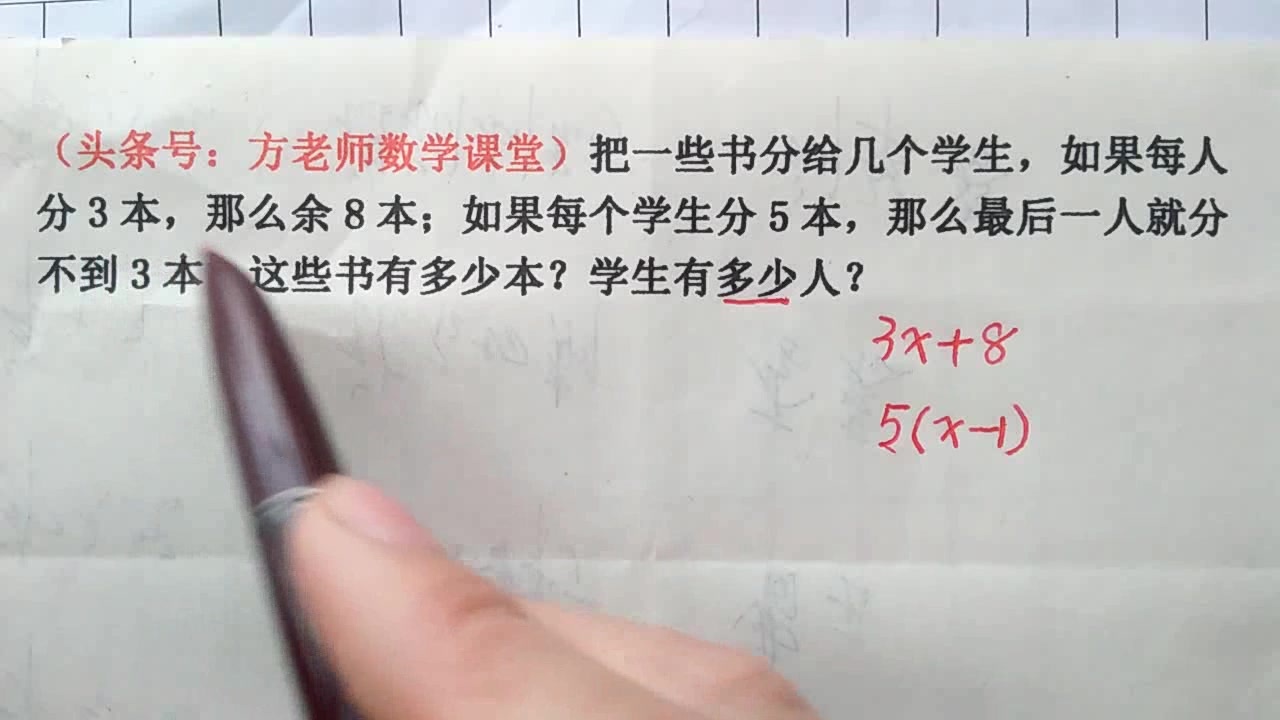 （头条号：方老师数学课堂）把一些书分给几个学生，如果每人
分3本，那么余8本；如果每个学生分5本，那么最后一人就分
不到3本 这些书有多少本？学生有多少人？
3x+8
5(x-1)